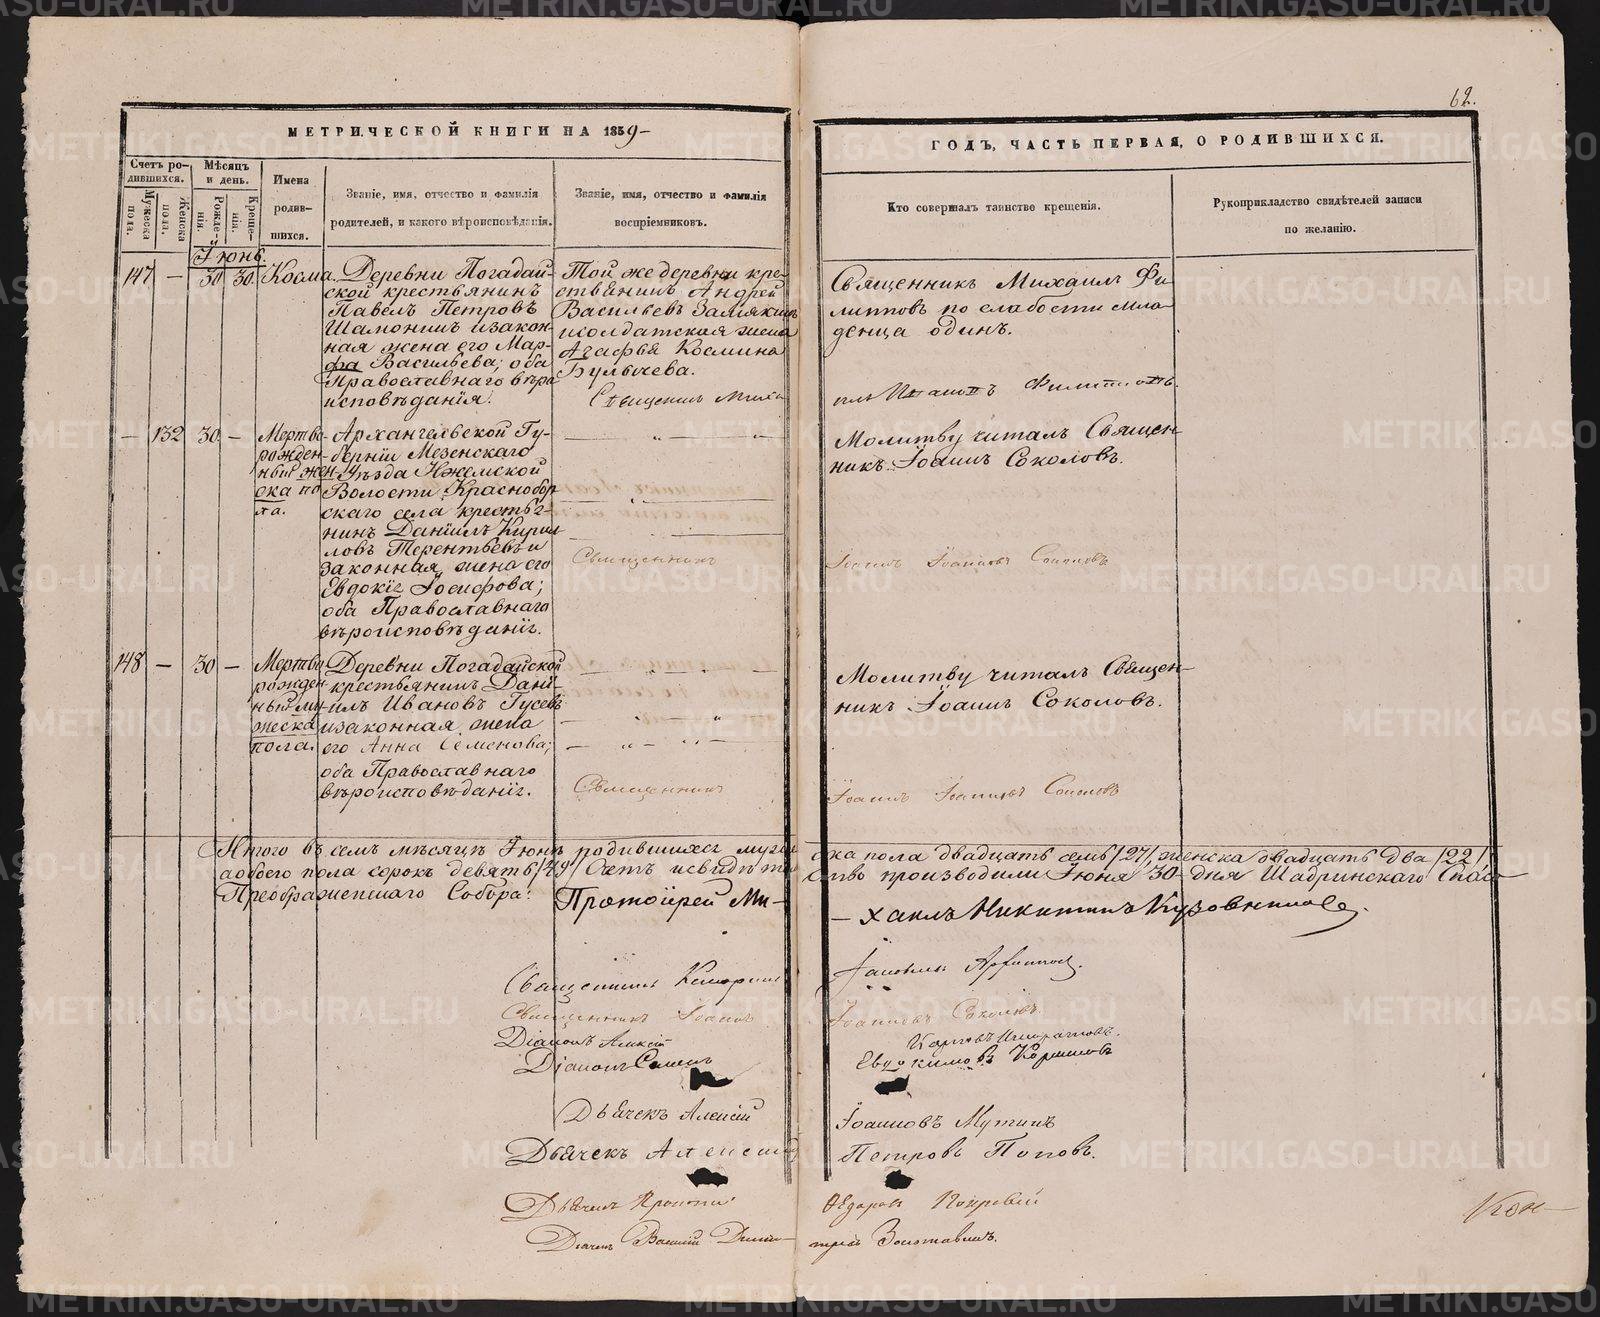 METRIKI.GASO-URAL.RU
62.
МЕТРИЧЕСКОЙ КНИГИ НА 1859
ГОДЪ, ЧАСТЬ ПЕРВАЯ, О РОДИВШИХСЯ.
Счетъ ро-
дившихся.
Мужеска
пола.
Женска
пола.
Мѣсяцъ
и день.
Рожде-
нія.
Креще-
нія.
Имена
родив-
шихся.
Званіе, имя, отчество и фамилія
родителей, и какого вѣроисповѣданія.
Званіе, имя, отчество и фамилія
воспріемниковъ.
Кто совершалъ таинство крещенія.
Рукоприкладство свидѣтелей записи
по желанію.
Іюнь.
147 — 30 30 Косма.
Деревни Погадай-
ской крестьянинъ
Павелъ Петровъ
Шамонинъ и закон-
ная жена его Мар-
фа Васильева; оба
Православнаго вѣро
исповѣданія.
Той же деревни кре-
стьянинъ Андрей
Васильевъ
и солдатская жена
Агафья Космина
Булычева.
Священникъ Миха-
Священникъ Михаилъ Фи
липповъ по слабости мла-
денца одинъ.
илъ Филипповъ.
— 132 30 —
Мертво
рожден-
ный жен-
ска по
ла.
Архангельской Гу-
берніи Мезенскаго
Уѣзда Ижемской
Волости Краснобор
скаго села крестья-
нинъ Даніилъ Кирил
ловъ Терентьевъ и
законная жена его
Евдокія Іосифова;
оба Православнаго
вѣроисповѣданія.
Священникъ
Молитву читалъ Священ-
никъ Іоаннъ Соколовъ.
Іоаннъ Іоанновъ Соколовъ
148 — 30 —
Мертво
рожден-
ный му-
жеска
пола.
Деревни Погадайской
крестьянинъ Дані-
илъ Ивановъ Гусевъ
и законная жена
его Анна Семенова;
оба Православнаго
вѣроисповѣданія.
Священникъ
Молитву читалъ Священ-
никъ Іоаннъ Соколовъ.
Іоаннъ Іоанновъ Соколовъ
Итого въ семъ мѣсяцѣ Іюнѣ родившихся муже
ска пола двадцать семь /27/, женска двадцать два /22/
а обоего пола сорокъ девять /49/ Счетъ и свидѣтель
ство производили Іюня 30 дня Шадринскаго Спасо
Преображенскаго Собора:
Протоіерей Ми-
хаилъ Никитинъ
Священникъ
Священникъ Іоаннъ
Іоанновъ Соколовъ.
Діаконъ Алексій
Карповъ
Діаконъ Семенъ
Евдокимовъ
Дьячекъ Алексій
Іоанновъ Мутинъ
Дьячекъ Алексій
Петровъ Поповъ.
Дьячекъ
Федоровъ
Дьячекъ Василій Дими-
трей
Кон-